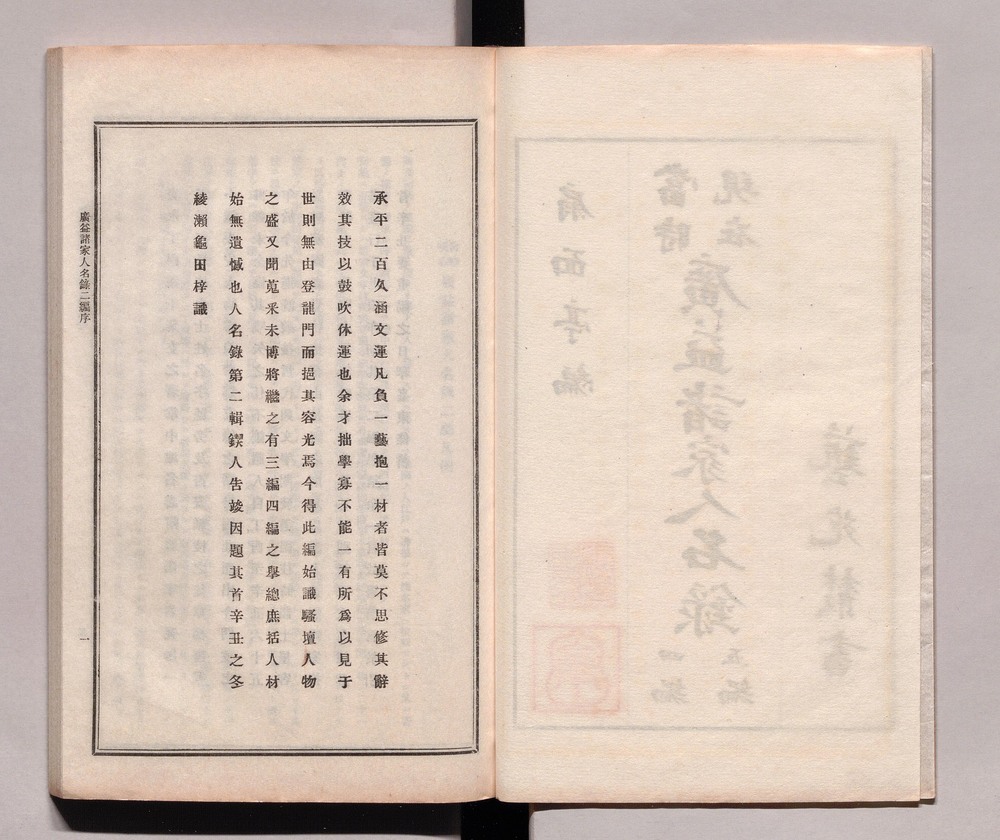 承平二百久涵文運凡負一藝抱一材者皆莫不思修其辭
效其技以鼓吹休運也余才拙學寡不能一有所爲以見于
世則無由登龍門而挹其容光焉今得此編始識騷壇人物
之盛又聞蒐釆未博將繼之有三編四編之擧總庶括人材
始無遺憾也人名錄第二輯鍥人告竣因題其首辛丑之冬
綾瀨龜田梓識
廣益諸家人名錄二編序
一
藝苑叢書
現在
當時
廣益諸家人名錄
五編
四編
扇面亭編